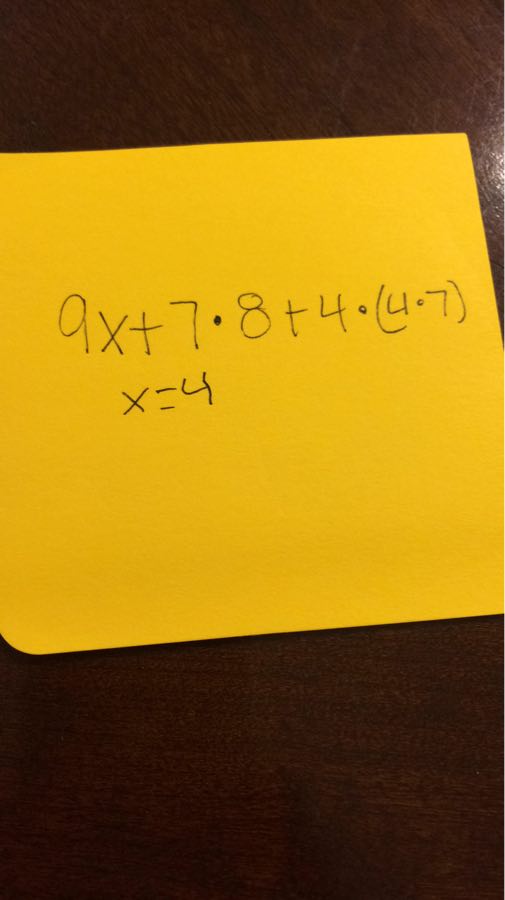 9x+7•8+4•(4•7)
x=4